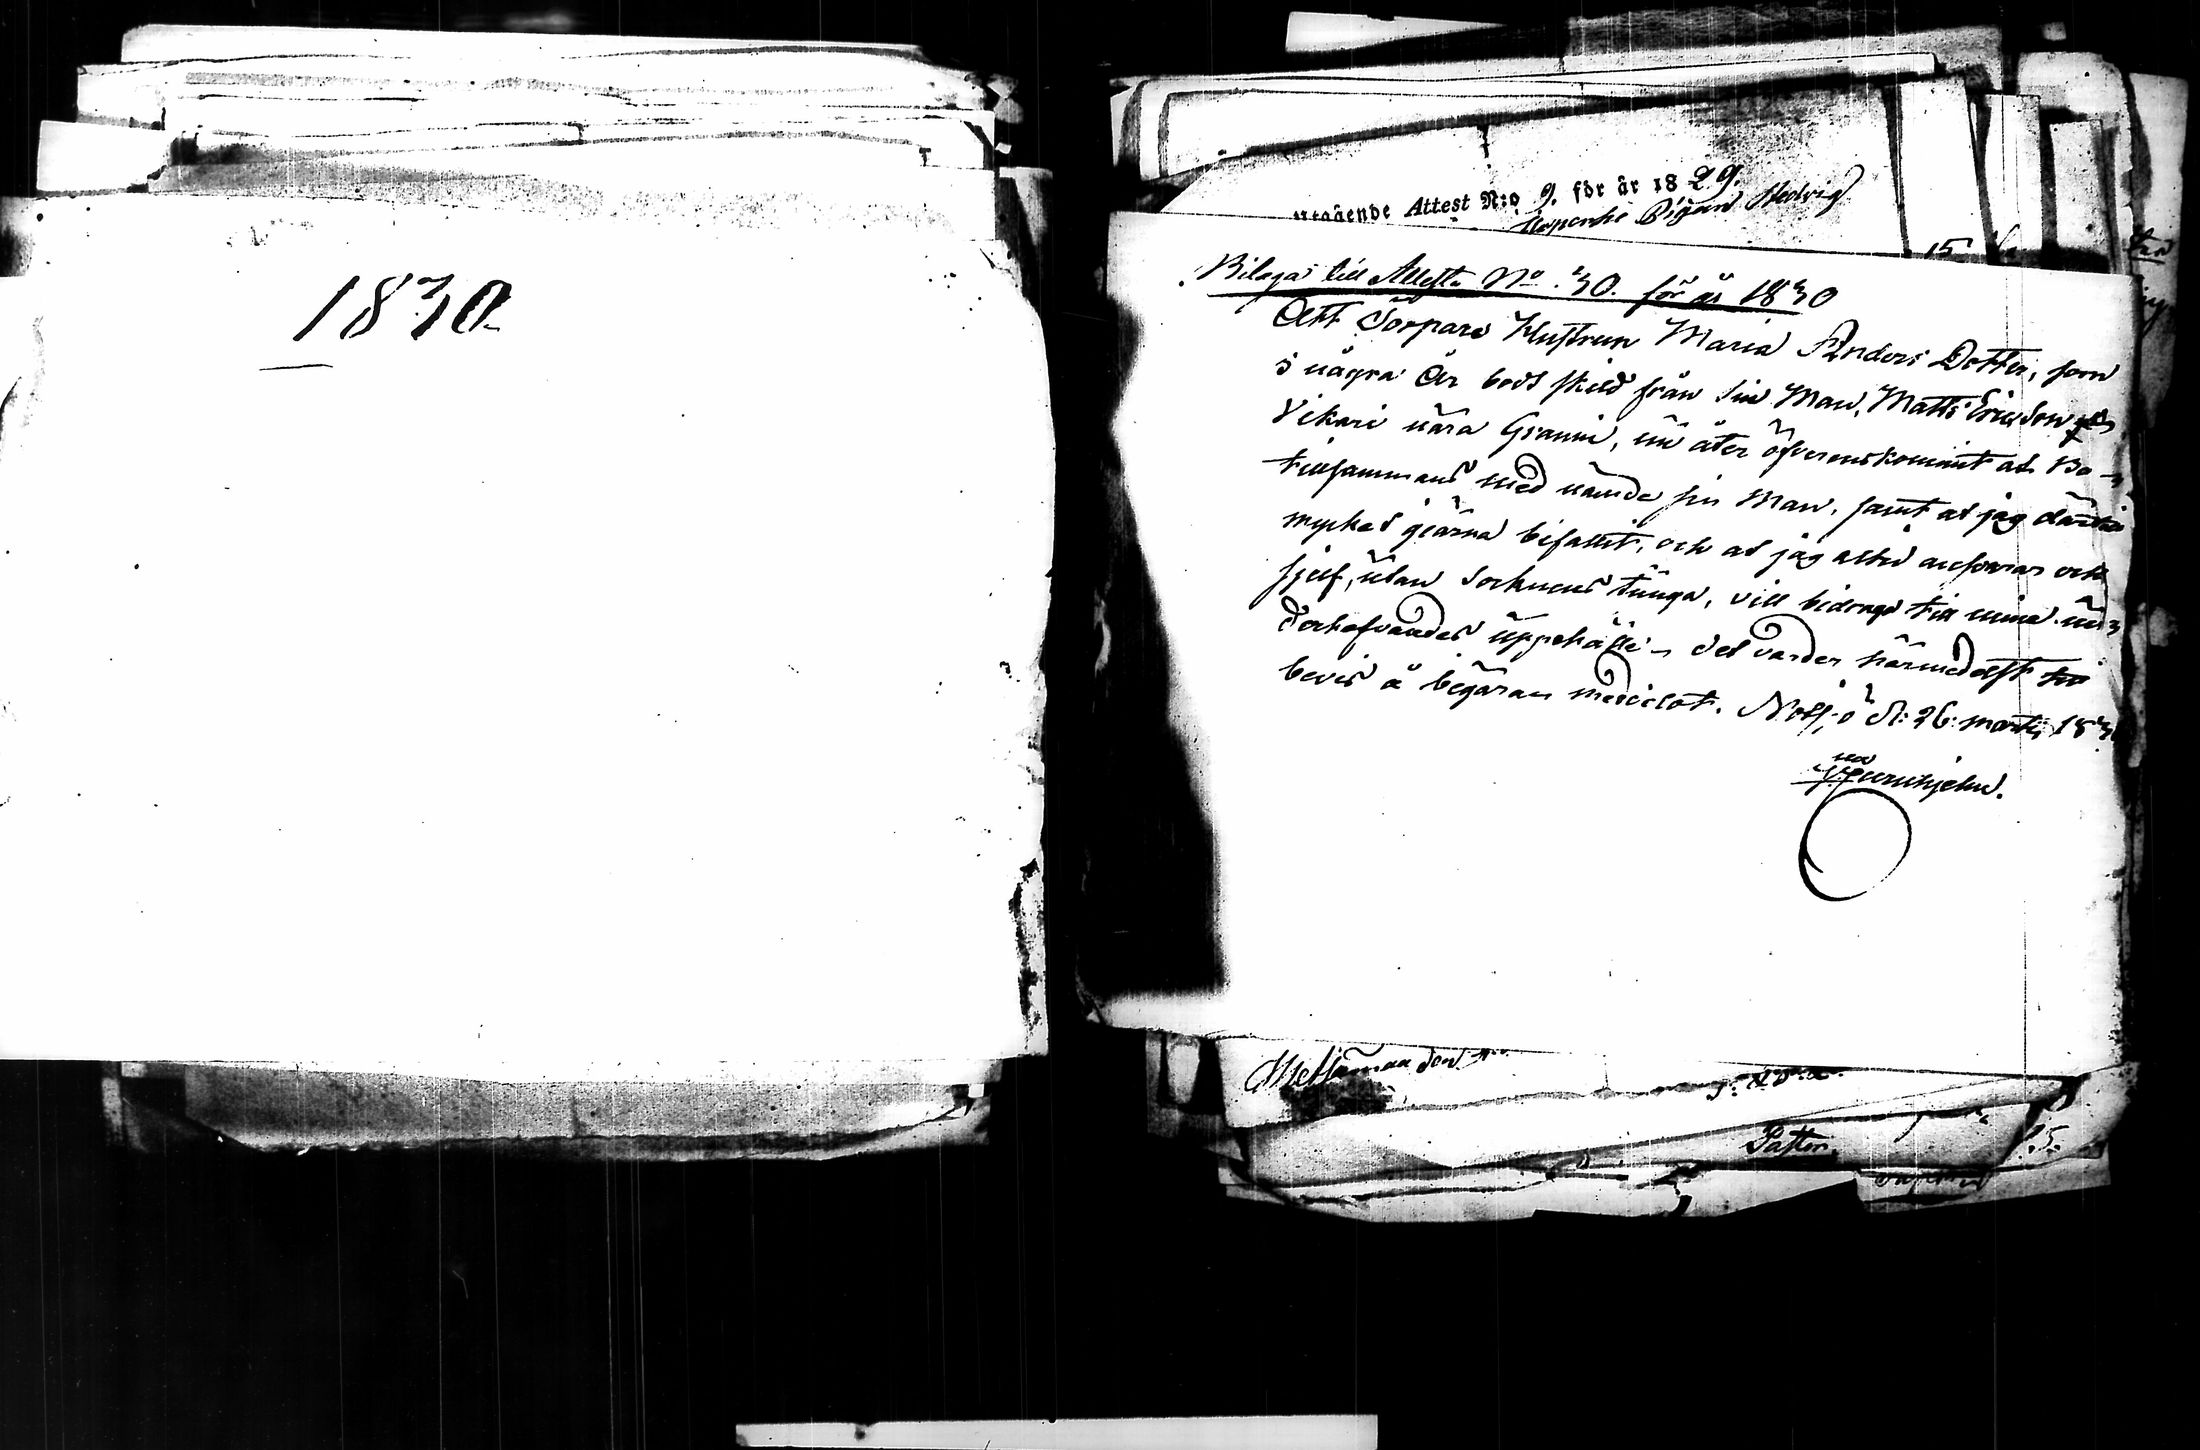 1830.
Utgående Attest N:o 9. för år 1829.
Pigan Hedvig
15
Bilaga till Attest. No. 30. för år 1830
Att Torpare Hustrun Maria Anders Dotter, som
i några År bodt skild från sin Man, Matts Ericsson
Vikari nära Granni, nu åter öfverenskommit at Bo
tillsammans med nämde sin Man, samt at jag därtill
mycket gjärna bifallit, och at jag altid ansvarar och
sjelf, utan Socknens tunga, vill bidraga till mina
uppehälle – det varder härmedelst till
bevis å begäran meddelat. d: 26 martii 183
Metsämaa den
Pastor.